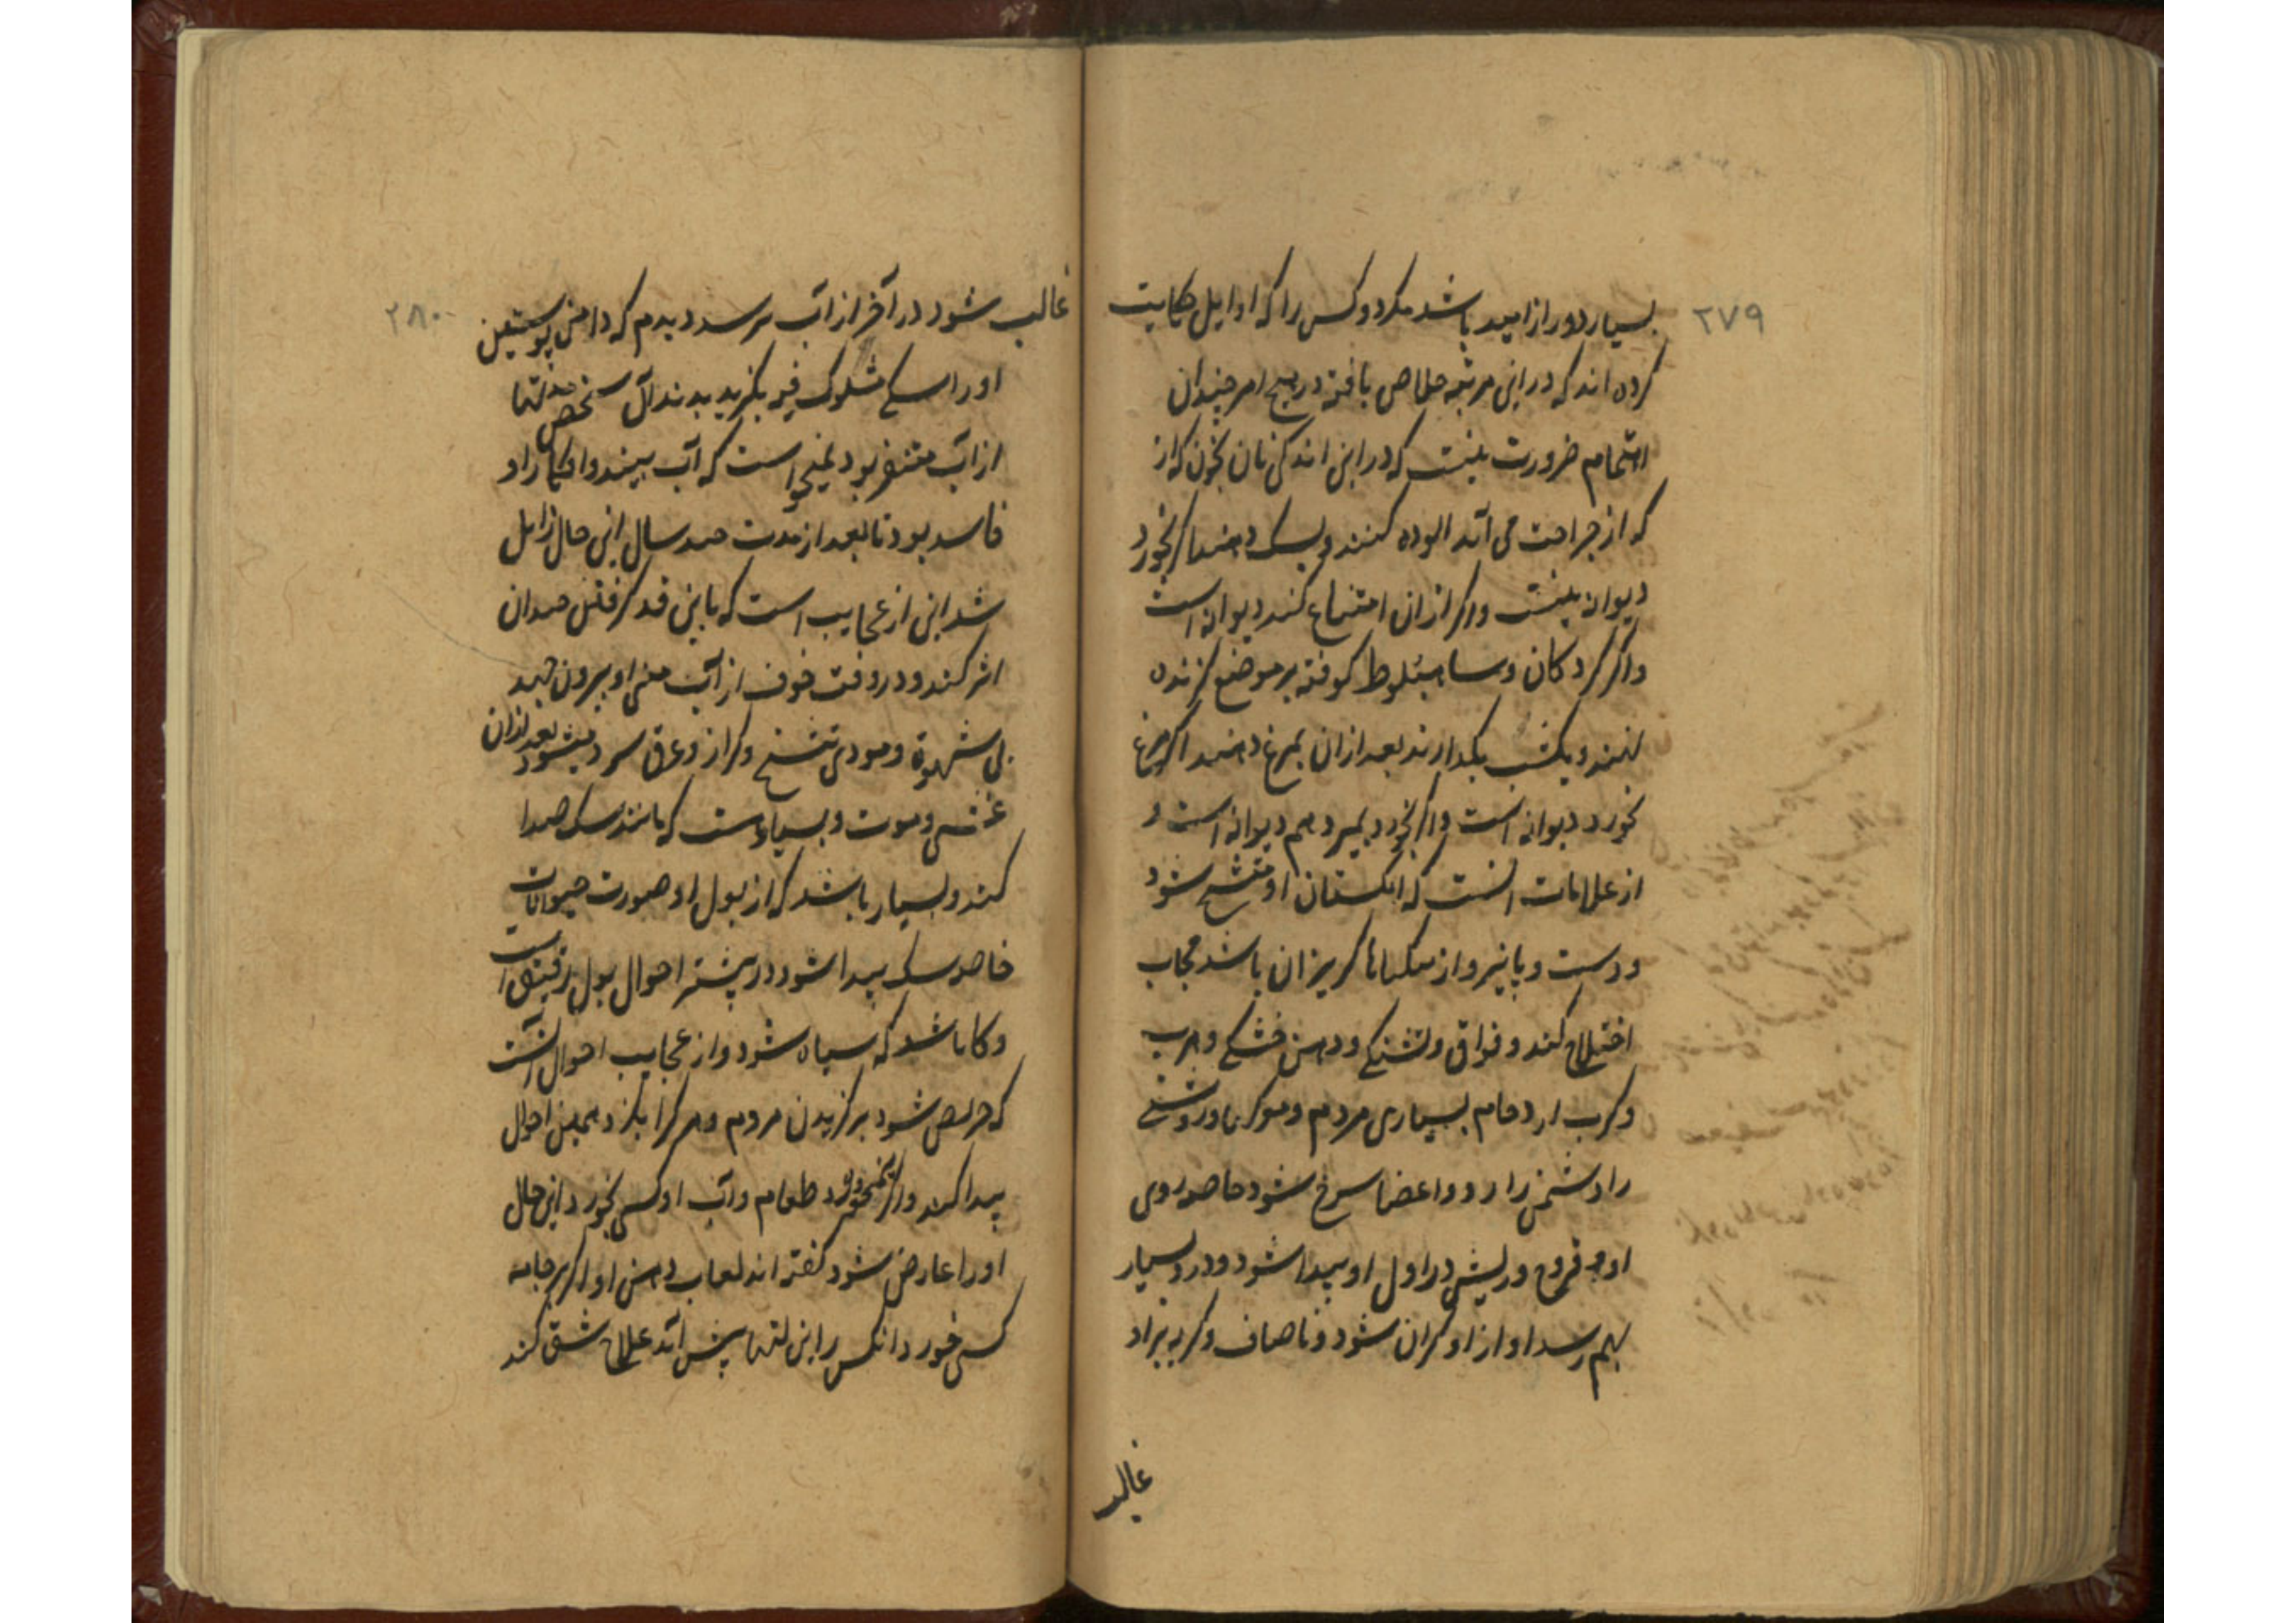 ۲۷۹
بسیار دور از امید باشد مکر دو کس را که اوایل حکایت
کرده اند که در این مرتبه خلاص یافته در هیچ امر چندان
اهتمام ضرورت نیست که در این اندکی نان بخون که از
که از جراحت می آید الوده کنند و بسک دهند اکر نخورد
دیوانه نیست و اکر از ان امتناع کند دیوانه است
و اکر کردکان و شاه بلوط کوفته بر موضع کزنده
نهند و یکشب بکدارند بعد از ان بمرغ دهند اکر مرغ
نخورد دیوانه است و اکر بخورد و بمیرد هم دیوانه است و
از علامات انست که انکشتان او متشنج شود
و دست و پا نیز و از کریزان باشد حجاب
اختلاج کند و فواق و تشنکی و دهن خشکی و هرب
و کرب ازدحام بسیاری مردم و روشنی
را دشمن دارد و اعضا سرخ شود خاصه روی
او و قروح و ریش در اول او پیدا شود و درد بسیار
بهم رسد اواز او کران شود و ناصاف و کریه
غالب
۲۸۰
غالب شود در آخر از آب ترسد دیدم که دامن پوستین
او را سکی بکزید بدندان شخص مدتها
از آب متنفر بود نمیخواست که آب بیند و افکار او
فاسد بود تا بعد از مدت چند سال این حال زایل
شد این از عجایب است که باین قدر کرفتن چندان
اثر کند و در وقت خوف از آب منی او بیرون جهد
بی شهوة و مودی تشنج و کزاز و عرق سرد میشود بعد از ان
غشی و موت و بسیار است که مانند سک صدا
کند و بسیار باشد که از بول او صورت حیوانات
خاصه سک پیدا شود در بیشتر احوال بول رقیق است
و کاه باشد که سیاه شود و از عجایب احوال آنست
که حریص شود بر کزیدن مردم و هر کرا بکزد همین احوال
پیدا کند و اکر نیمخورد طعام و آب او کسی بخورد این حال
او را عارض شود کفته اند لعاب دهن او اکر بر جامه
کسی خورد انکس را این لتها پیش آید علاج شق کند